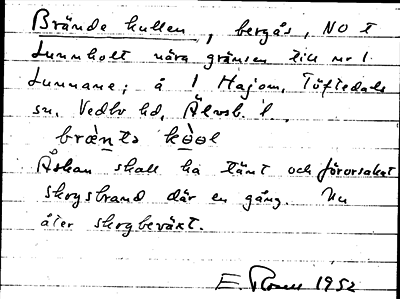 Brände kullen, bergås, NO t
Lunnholt nära gränsen till nr 1
Lunnane; å 1 Hajom, Töftedals
sn. Vedbo hd, Älvsb. l.
brænta kòol
Åskan skall ha tänt och förorsakat
skogsbrand där en gång. Nu
åter skogbeväxt.
E. 1952